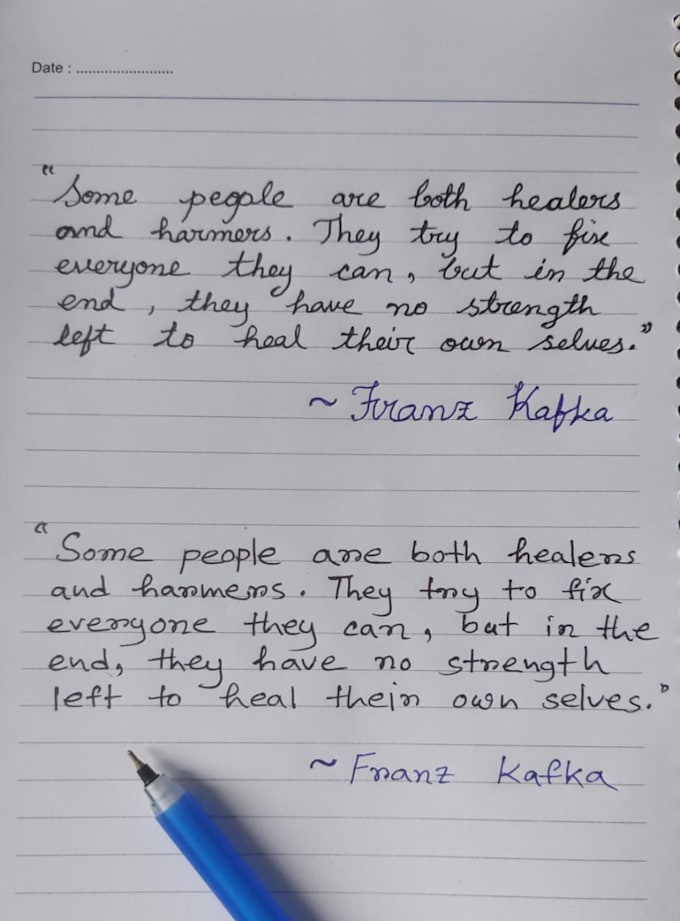 Date : ........................
"Some people are both healers
and harmers. They try to fix
everyone they can, but in the
end, they have no strength
left to heal their own selves."
~ Franz Kafka
"Some people are both healers
and harmers. They try to fix
everyone they can, but in the
end, they have no strength
left to heal their own selves."
~ Franz Kafka